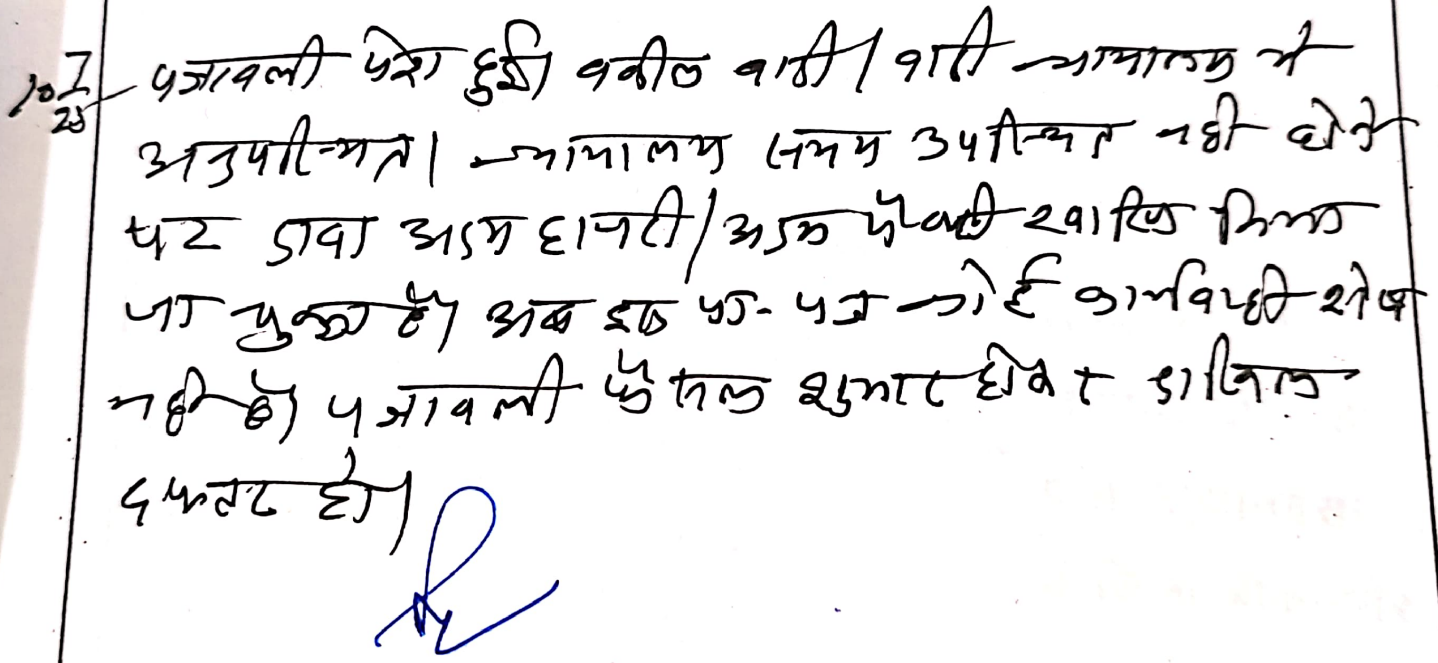 10/7/25 पत्रावली पेश हुई। वकील वादी / वादी न्यायालय मे
अनुपस्थित। न्यायालय समय उपस्थित नही होने
पर दावा अदम हाजरी / अदम पैरवी खारिज किया
जा चुका है। अब इस प्रा. पत्र कोई कार्यवाही शेष
नही है। पत्रावली फैसल शुमार होकर दाखिल
दफ्तर हो।